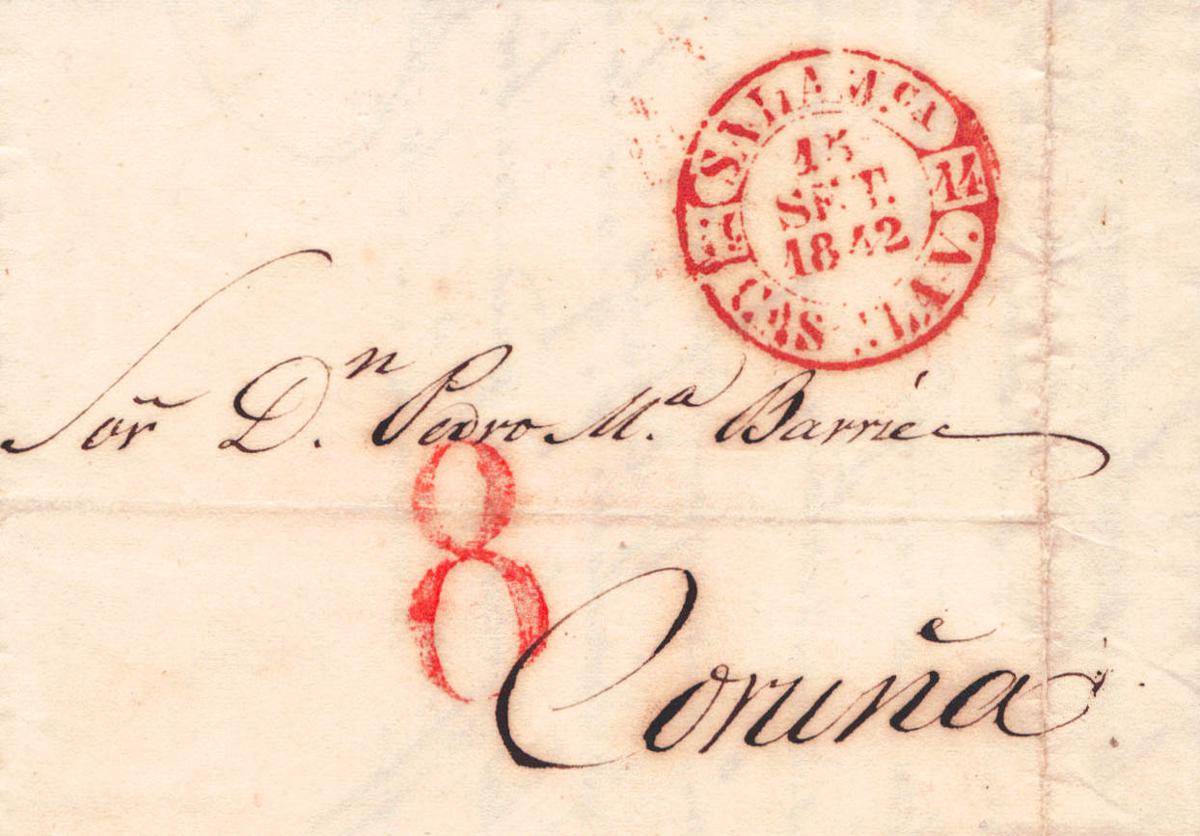 SALAM.CA
14
15
SET.
1842
Sor Dn. Pedro Ma. Barrié
8
Coruña